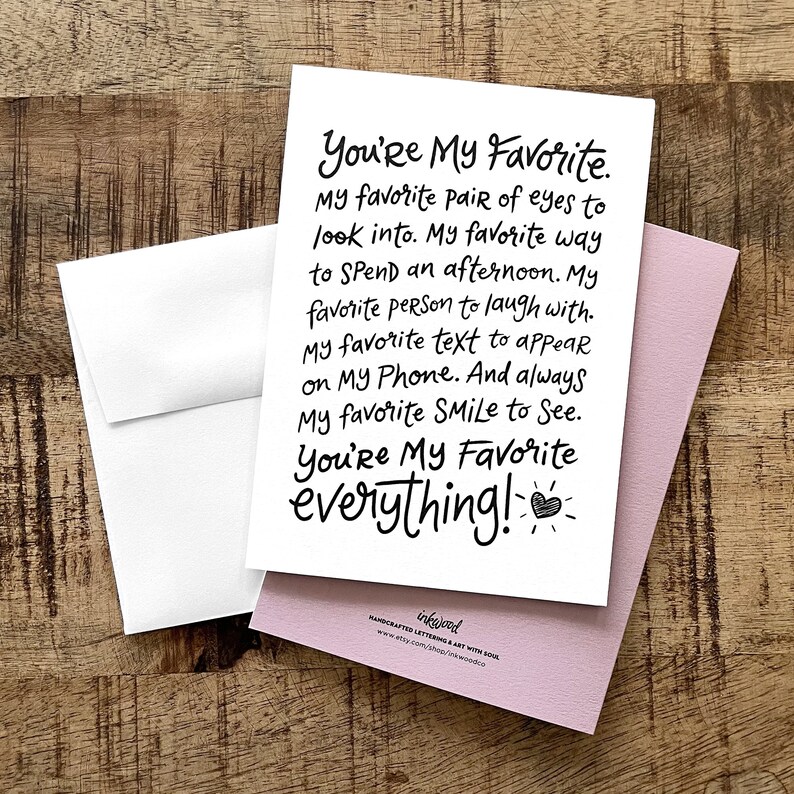 You're My Favorite.
My favorite pair of eyes to
look into. My favorite way
to spend an afternoon. My
favorite person to laugh with.
My favorite text to appear
on my phone. And always
my favorite smile to see.
You're My Favorite
everything!
inkwood
HANDCRAFTED LETTERING & ART WITH SOUL
www.etsy.com/shop/inkwoodco